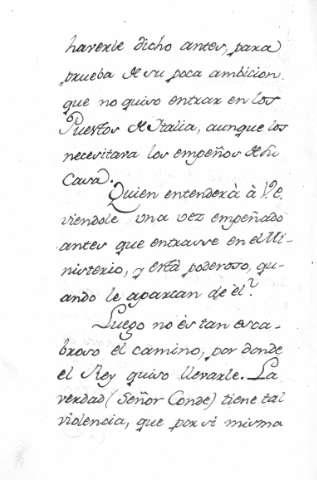 haverle dicho antes, para
prueba de su poca ambicion,
que no quiso entrar en los
Puestos de Italia, aunque los
necesitara los empeños de su
Casa.
Quien entenderà à V.e
viendole una vez empeñado
antes que entrasse en el Mi-
nisterio, y està poderoso, qu-
ando le apartan de èl?
Luego no ès tan esca-
broso el camino, por donde
el Rey quiso llevarle. La
verdad (Señor Conde) tiene tal
violencia, que por si misma